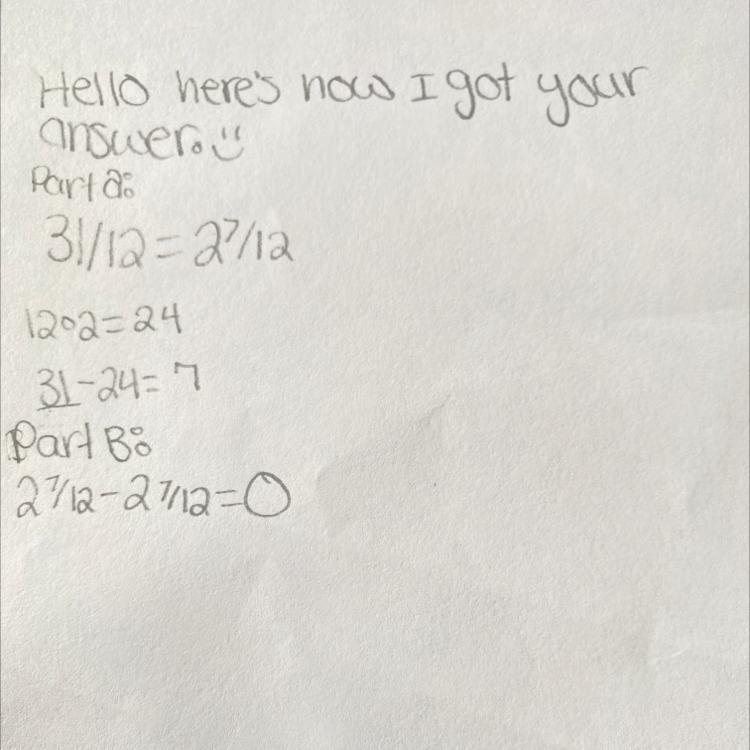 Hello here's how I got your
answer. :)
Part a:
31/12 = 2 7/12
12•2=24
31-24=7
Part B:
2 7/12 - 2 7/12 = 0